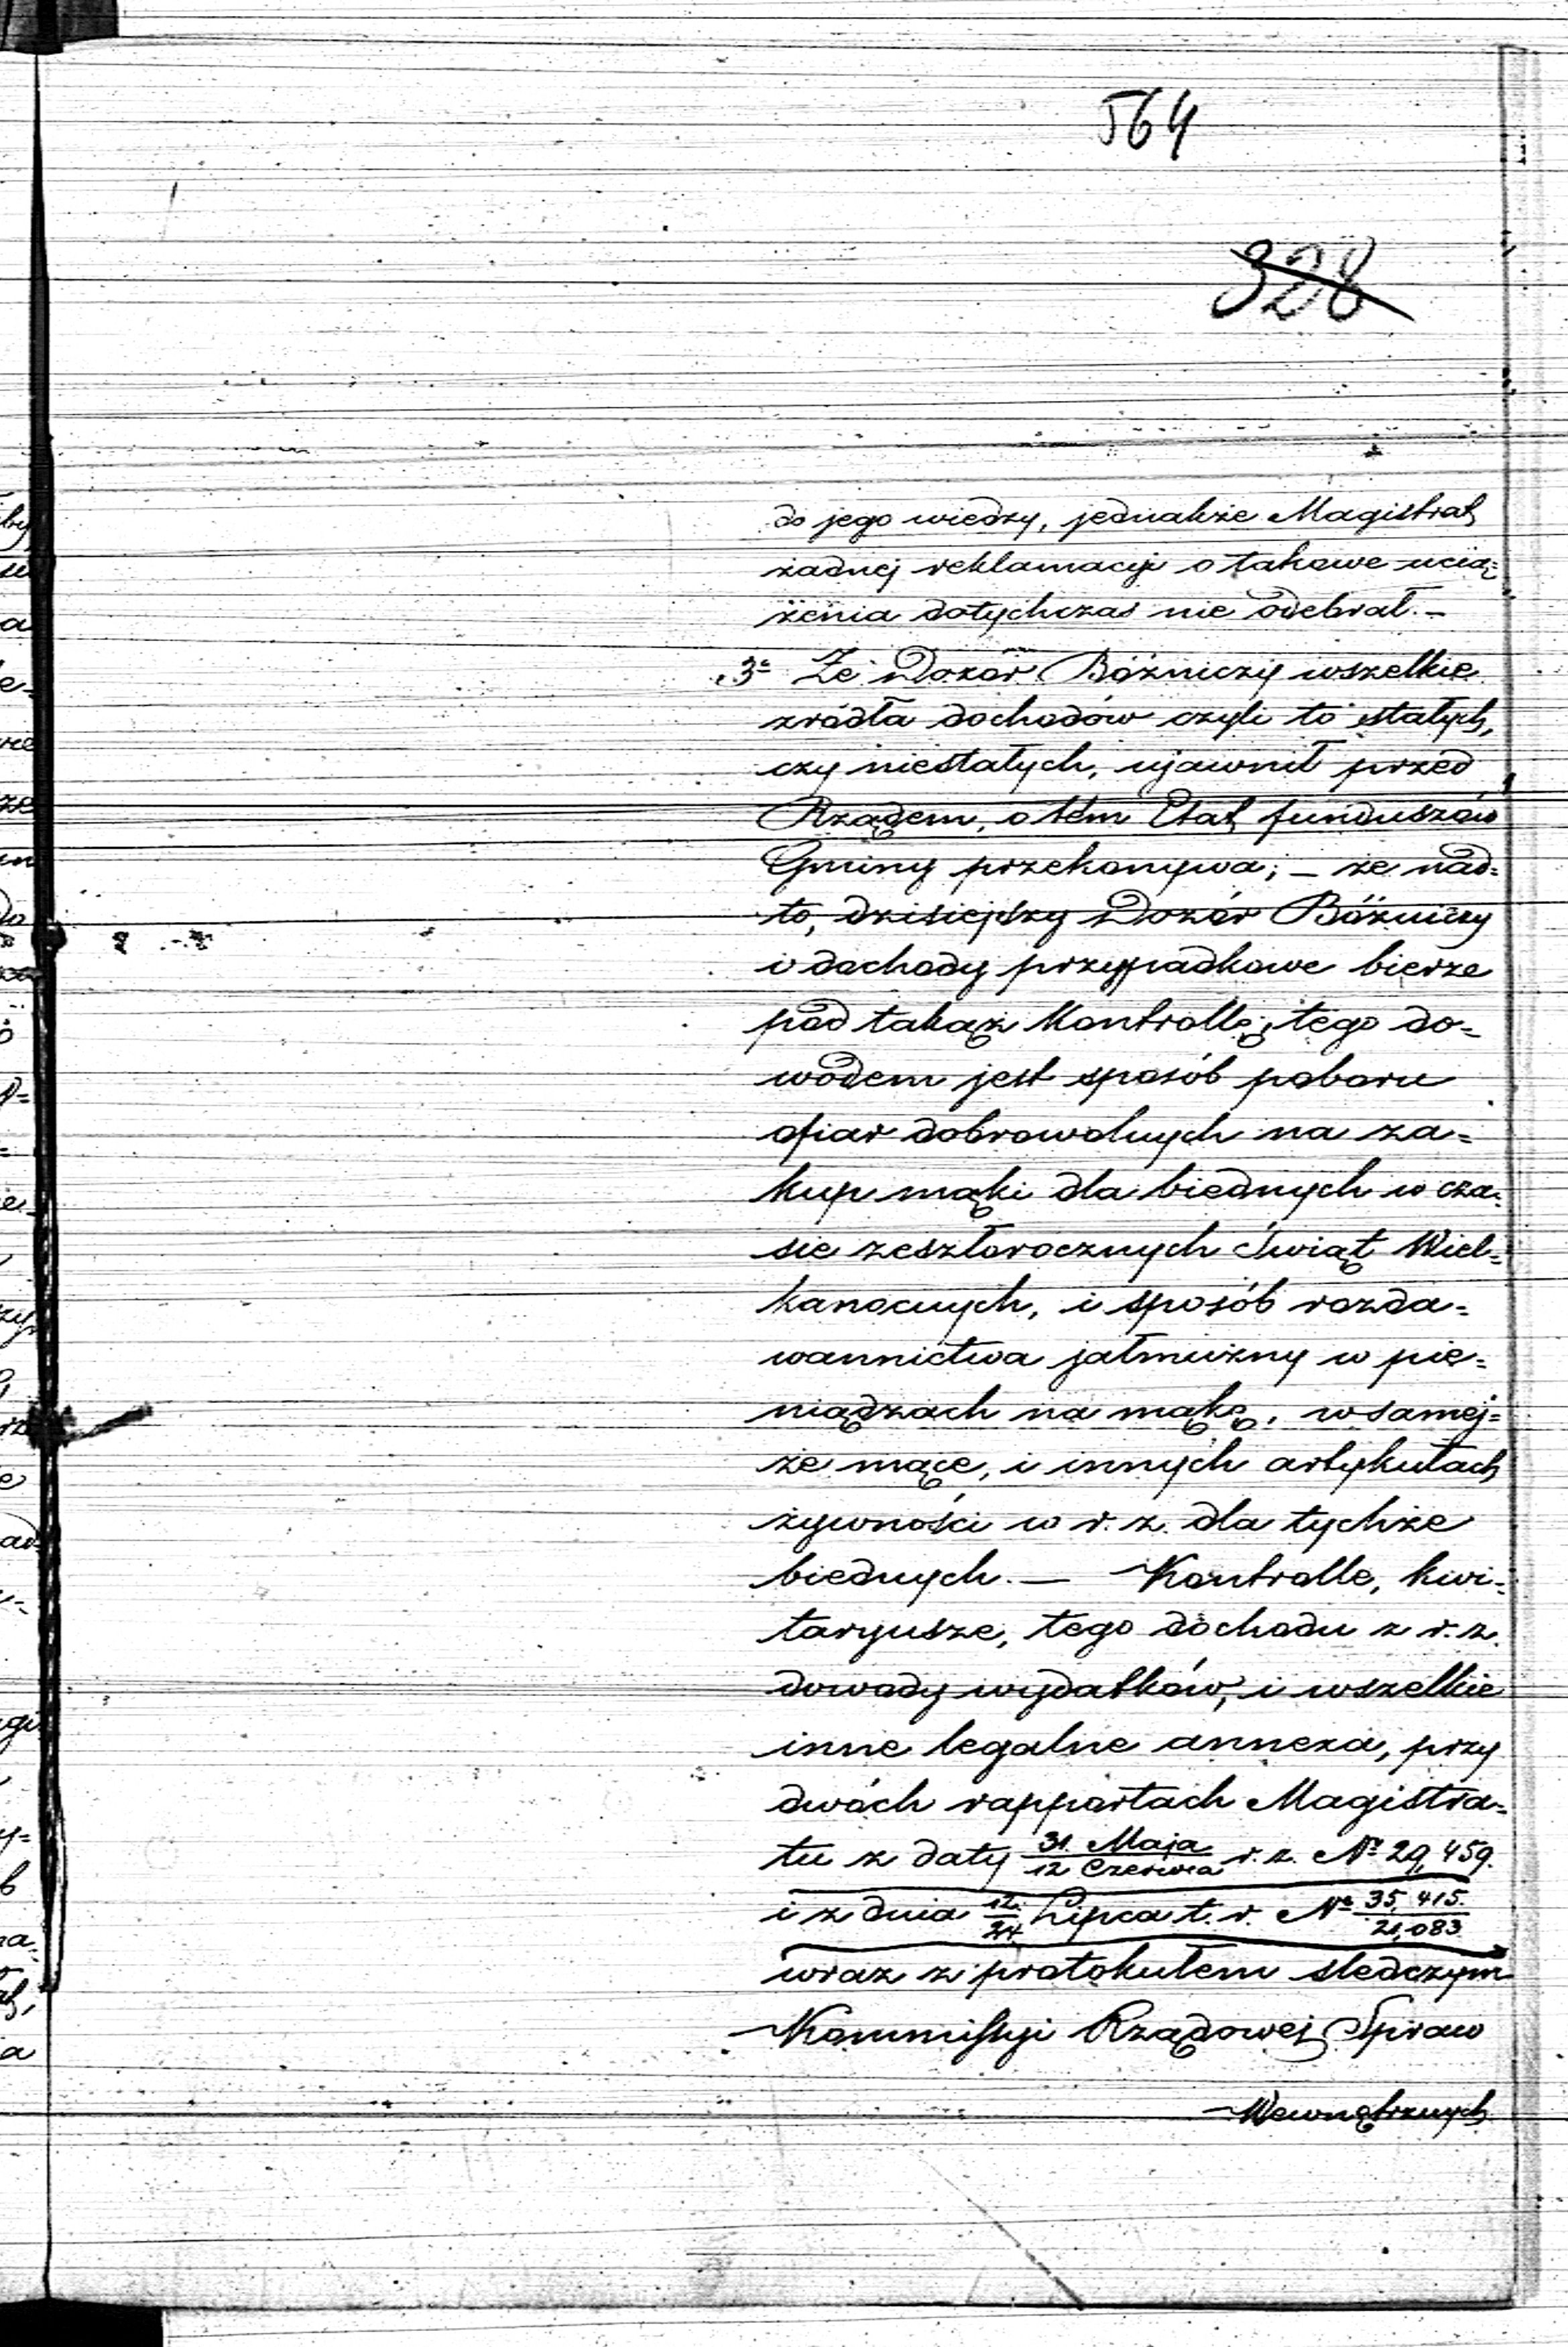 564
328
do jego wiedzy, jednakże Magistrat
żadnej reklamacyi o takowe ucią=
żenia dotychczas nie odebrał. –
3º Że Dozór Bóżniczy wszelkie
zródła dochodów czyli to stałych,
czy niestałych, ujawnił przed
Rządem, o tém Etat funduszów
Gminy przekonywa; – że nad=
to, dzisiejszy Dozór Bóżniczy
i dochody przypadkowe bierze
pod takąż Kontrollę; tego do=
wodem jest sposób poboru
ofiar dobrowolnych na za=
kup mąki dla biednych w cza=
sie zeszłorocznych Świąt Wiel=
kanocnych, i sposób rozda=
wannictwa jałmużny w pie=
niądzach na mąkę, w samej=
że mące, i innych artykułach
żywności w r. z. dla tychże
biednych. — Kontrolle, kwi=
taryusze, tego dochodu z r. z.
dowody wydatków, i wszelkie
inne legalne annexa, przy
dwóch rapportach Magistra=
tu z daty 31. Maja / 12 Czerwca r. z. Nº 29,459.
i z dnia 12. / 24. Lipca t. r. Nº 35,415. / 21,083
wraz z protokułem sledczym
Kommissyi Rządowej Spraw
Wewnętrznych